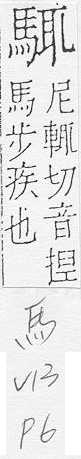 尼輒切音捏
馬步疾也
馬
V13
P6